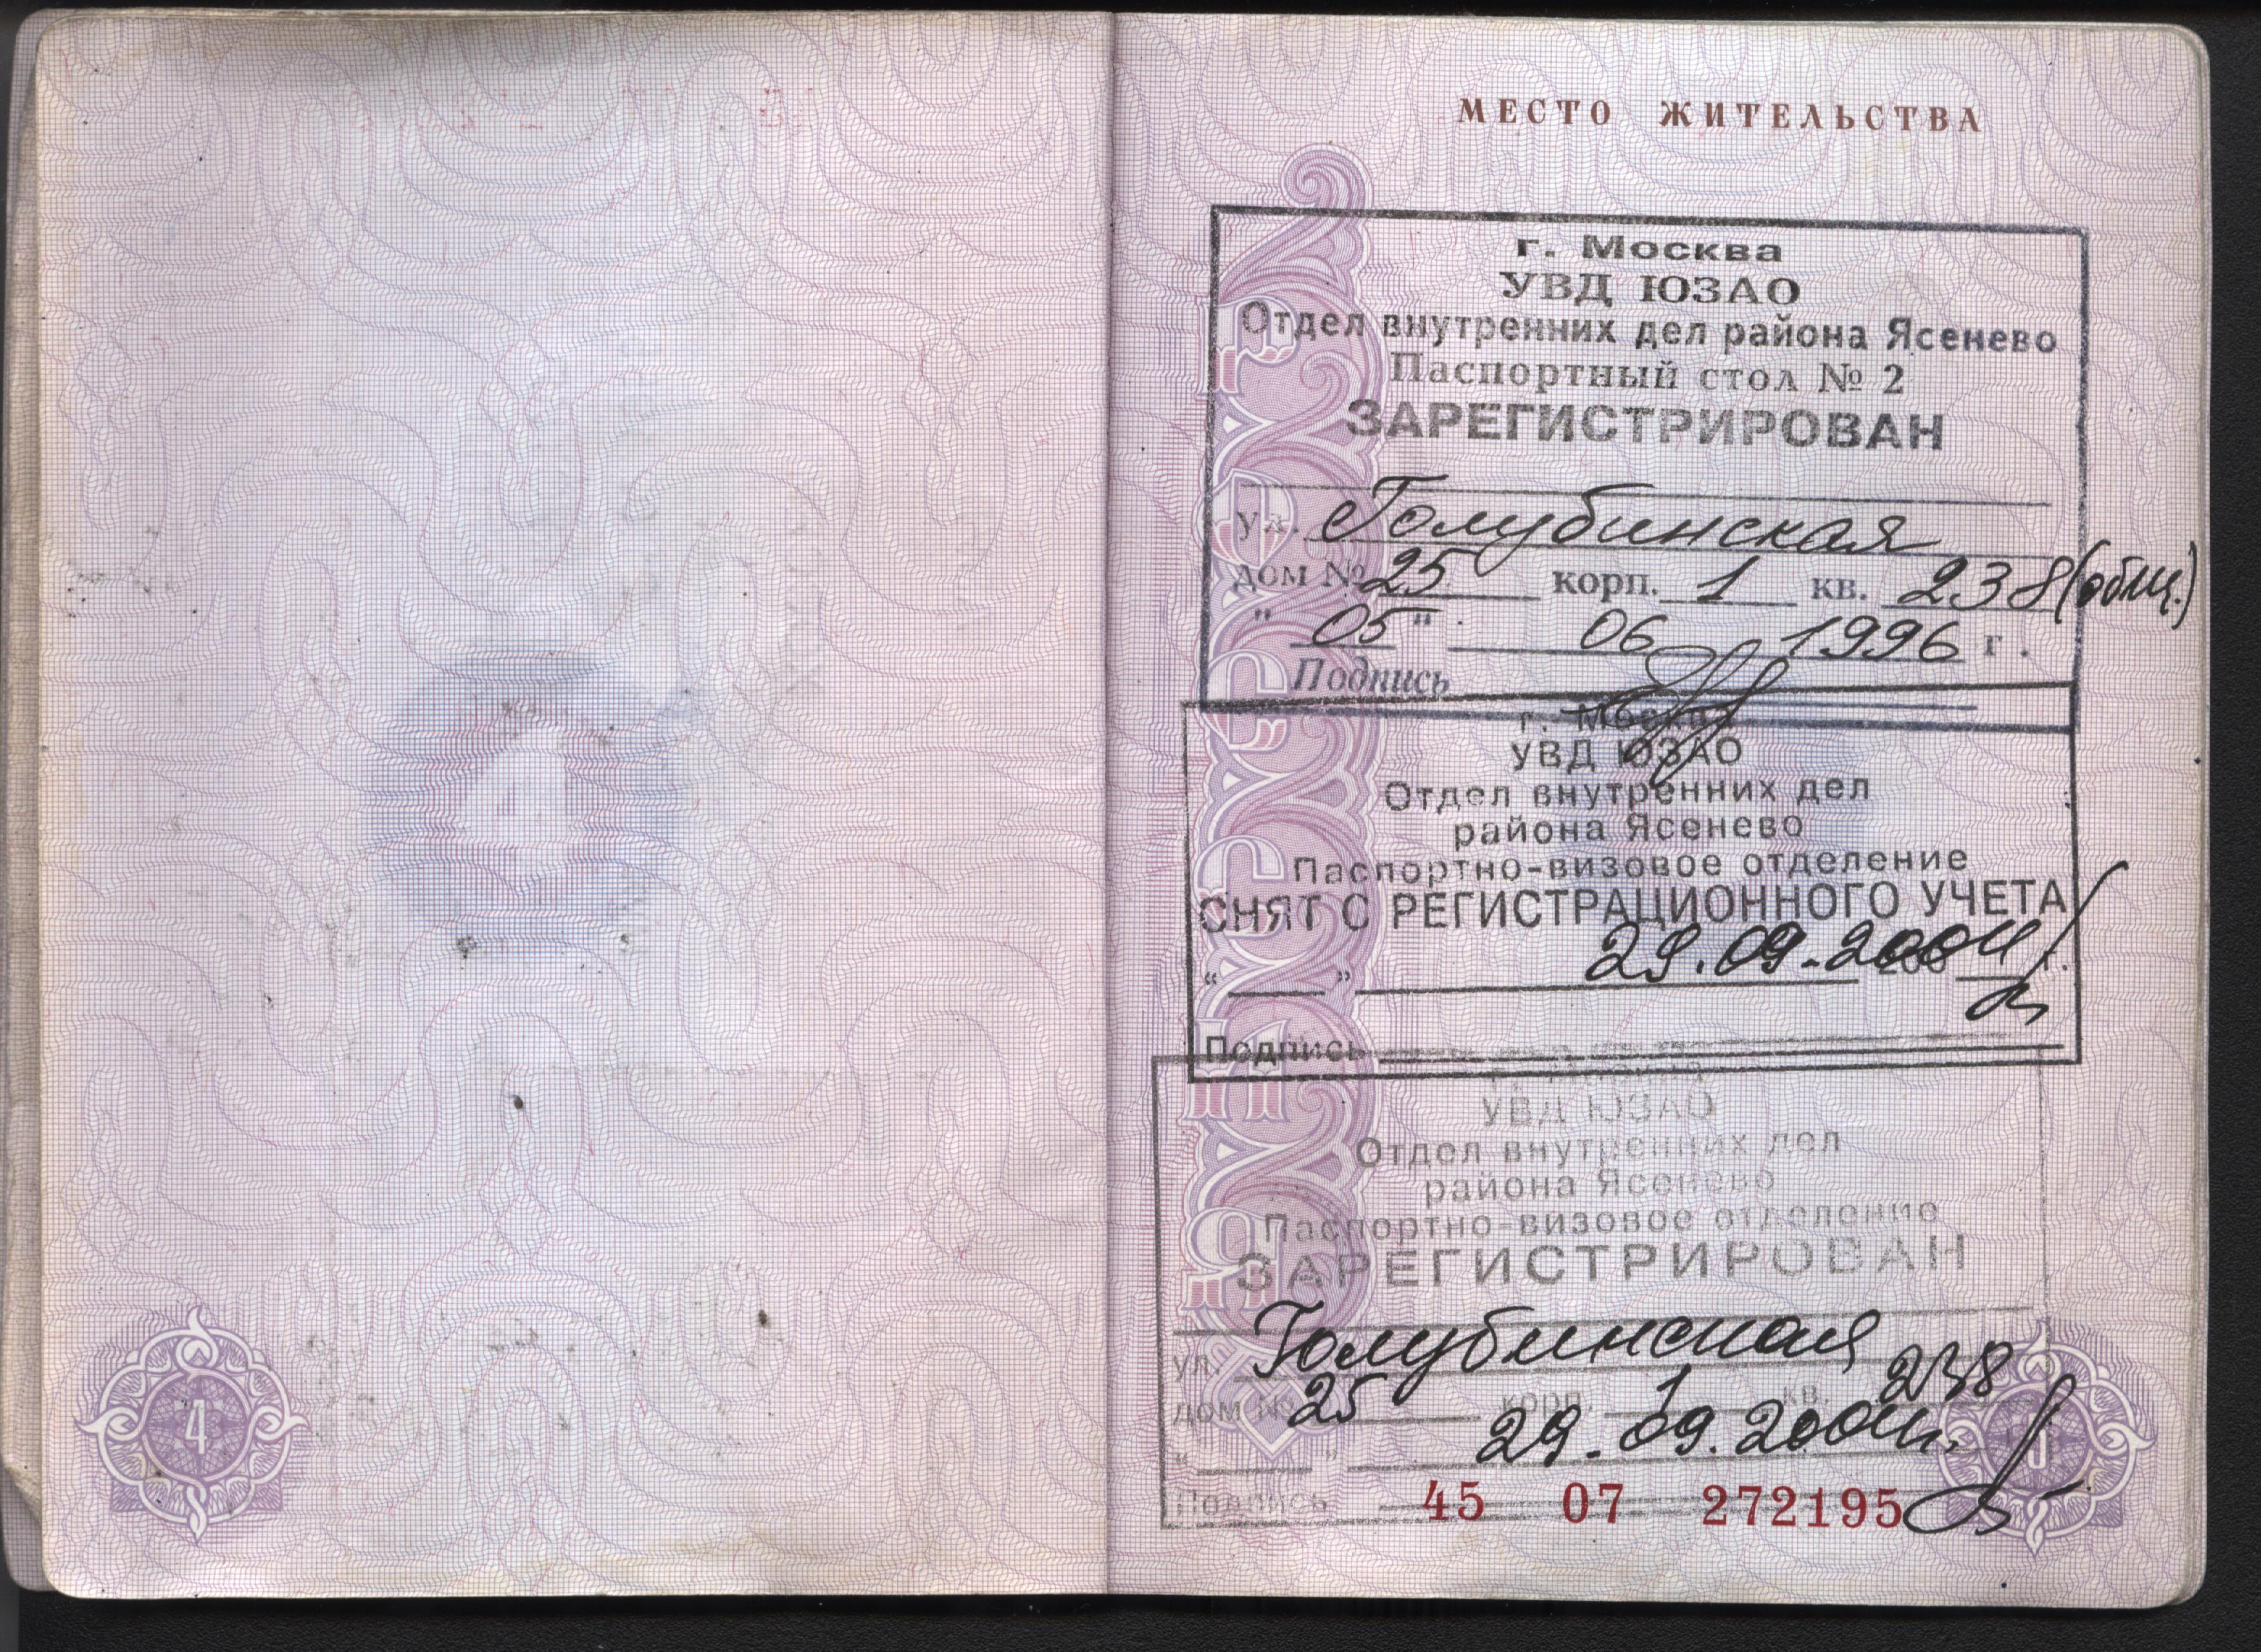 МЕСТО ЖИТЕЛЬСТВА
г. Москва
УВД ЮЗАО
Отдел внутренних дел района Ясенево
Паспортный стол № 2
ЗАРЕГИСТРИРОВАН
ул. Голубинская
дом № 25 корп. 1 кв. 238 (общ.)
" 05 " 06 1996 г.
Подпись
г. Москва
УВД ЮЗАО
Отдел внутренних дел
района Ясенево
Паспортно-визовое отделение
СНЯТ С РЕГИСТРАЦИОННОГО УЧЕТА
" " 29.09.2004 г.
Подпись
УВД ЮЗАО
Отдел внутренних дел
района Ясенево
Паспортно-визовое отделение
ЗАРЕГИСТРИРОВАН
ул. Голубинская
дом № 25 корп. 1 кв. 238
" " 29.09.2004г.
Подпись
45 07 272195
4
4
РОССИЯ